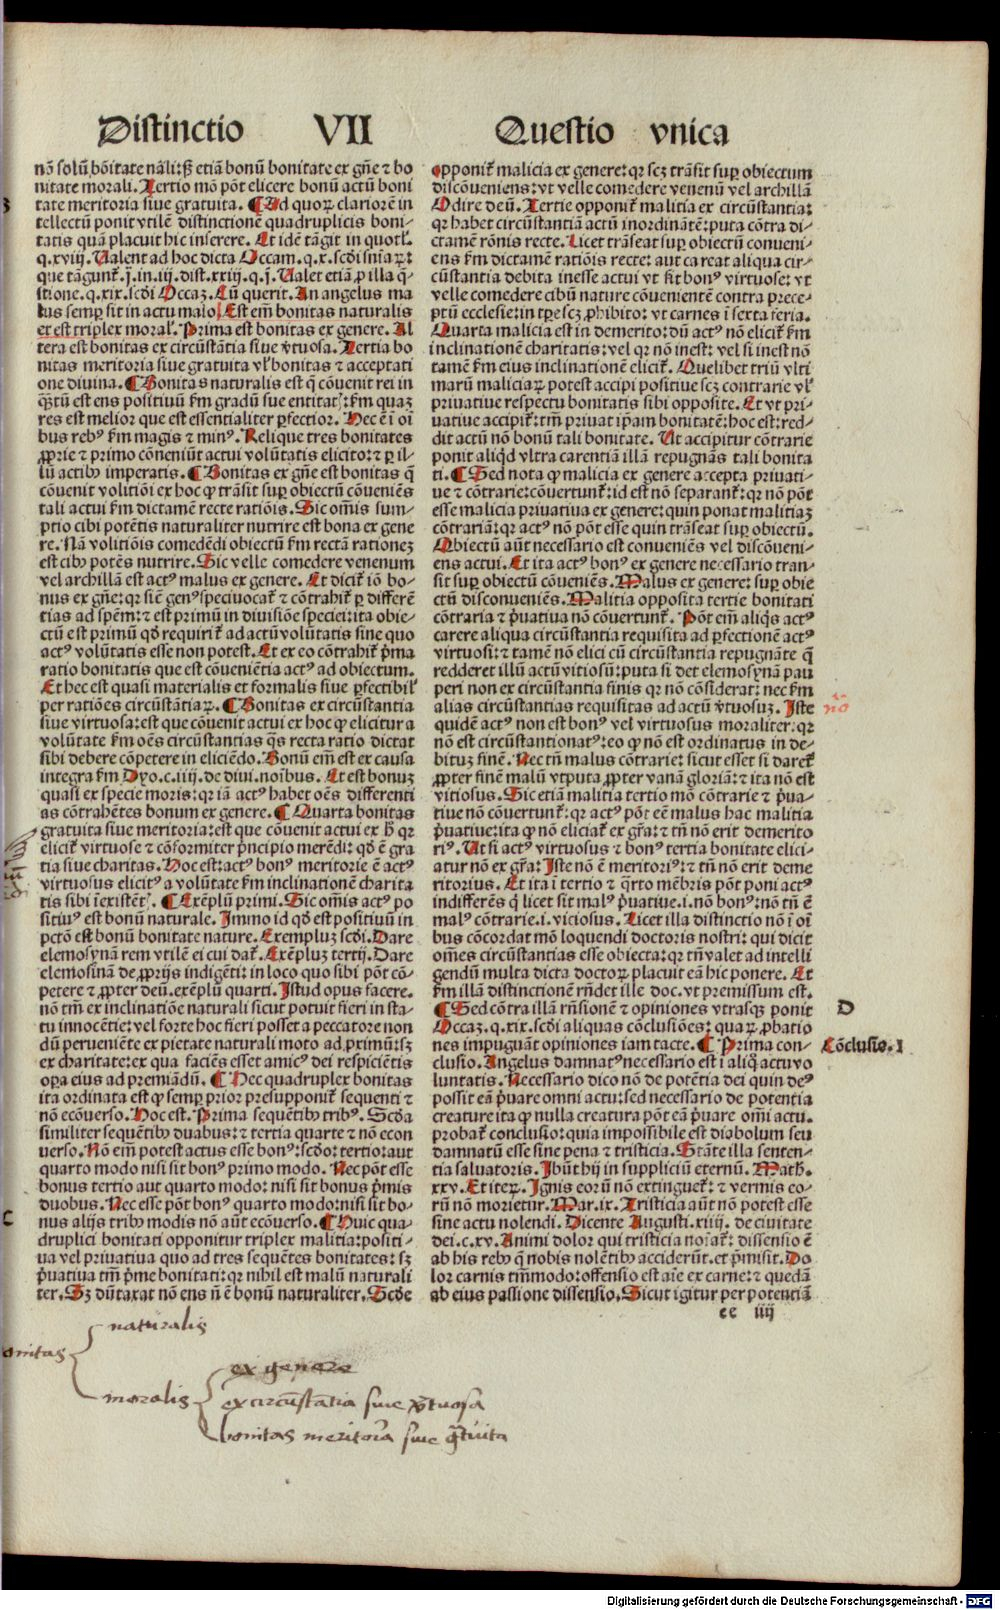 Distinctio VII Questio vnica
nō solū bōitate nāli: sꝫ etiā bonū bonitate ex gn̄e ⁊ bo
nitate morali. Tertio mō pōt elicere bonū actū boni
tate meritoria siue gratuita. ¶ Ad quoꝝ clariorē in
tellectū ponit vtilē distinctionē quadruplicis boni-
tatis quā placuit hic inserere. Et idē tāgit in quotl'.
q.xviij. Valent ad hoc dicta Occam.q.x.scďi snīaꝝ:
que tāgunť.j.in.iij.dist.xxiij.q.j. Valet etiā ꝓ illa q̄-
stione.q.xix.scďi Occaꝫ. Cū querit. An angelus ma
lus semꝑ sit in actu malo. Est em̄ bonitas naturalis
et est triplex moral'. Prima est bonitas ex genere. Al
tera est bonitas ex circūstātia siue v̓tuosa. Tertia bo
nitas meritoria siue gratuita vl' bonitas ⁊ acceptati
one diuina. ¶ Bonitas naturalis est q̄ cōuenit rei in
q̄ꝫtū est ens positiuū ẜm gradū sue entitatꝭ: ẜm quaꝫ
res est melior que est essentialiter ꝑfectior. Hec ē ī oī
bus rebꝰ ẜm magis ⁊ minꝰ. Relique tres bonitates
ꝓprie ⁊ primo cōueniūt actui volūtatis elicito: ⁊ ꝑ il-
lū actibꝰ imperatis. ¶ Bonitas ex gn̄e est bonitas q̄
cōuenit volitiōi ex hoc ꝙ trāsit suꝑ obiectū cōueniēs
tali actui ẜm dictamē recte ratiōis. Sic om̄is sum-
ptio cibi potētis naturaliter nutrire est bona ex gene
re. Nā volitiōis comedēdi obiectū ẜm rectā rationeꝫ
est cibꝰ potēs nutrire. Sic velle comedere venenum
vel archillā est actꝰ malus ex genere. Et diciť iō bo-
nus ex gn̄e: qꝛ siē genꝰ speciuocať ⁊ cōtrahiť ꝑ differē
tias ad spēm: ⁊ est primū in diuisiōe speciei: ita obie-
ctū est primū qď requiriť ad actū volūtatis sine quo
actꝰ volūtatis esse non potest. Et ex eo cōtrahiť p̓ma
ratio bonitatis que est cōueniētia actꝰ ad obiectum.
Et hec est quasi materialis et formalis siue ꝑfectibil'
per ratiōes circūstātiaꝝ. ¶ Bonitas ex circūstantia
siue virtuosa: est que cōuenit actui ex hoc ꝙ elicitur a
volūtate ẜm oēs circūstātias q̄s recta ratio dictat
sibi debere cōpetere in eliciēdo. Bonū em̄ est ex causa
integra ẜm Dyo.c.iiij.de diui.noībus. Et est bonuꝫ
quasi ex specie moris: qꝛ iā actꝰ habet oēs differenti
as cōtrahētes bonum ex genere. ¶ Quarta bonitas
gratuita siue meritoria: est que cōuenit actui ex h̓ qꝛ
eliciť virtuose ⁊ cōformiter p̓ncipio merēdi: qď ē gra
tia siue charitas. Hoc est: actꝰ bonꝰ meritorie ē actꝰ
virtuosus elicitꝰ a volūtate ẜm inclinationē charita
tis sibi īexistētꝭ. ¶ Exēplū primi. Sic omis actꝰ po
sitiuꝰ est bonū naturale. Immo id qď est positiuū in
pctō est bonū bonitate nature. Exempluꝫ scďi. Dare
elemosynā rem vtilē ei cui dať. Exēpluꝫ tertij. Dare
elemosinā de ꝓprijs indigēti: in loco quo sibi pōt cō-
petere ⁊ ꝓpter deū. exēplū quarti. Istud opus facere.
nō tm̄ ex inclinatiōe naturali sicut potuit fieri in sta-
tu innocētie: vel forte hoc fieri posset a peccatore non
dū perueniēte ex pietate naturali moto ad ꝓximū: sꝫ
ex charitate: ex qua faciēs esset amicꝰ dei respiciētis
oꝑa eius ad premiādū. ¶ Hec quadruplex bonitas
ita ordinata est ꝙ semꝑ prior presupponiť sequenti ⁊
nō ecōuerso. Hoc est. Prima sequētibꝰ tribꝰ. Scďa
similiter sequētibꝰ duabus: ⁊ tertia quarte ⁊ nō econ
uerso. Nō em̄ potest actus esse bonꝰ: scďo: tertio: aut
quarto modo nisi sit bonꝰ primo modo. Nec pōt esse
bonus tertio aut quarto modo: nisi sit bonus p̓mis
duobus. Nec esse pōt bonꝰ quarto modo: nisi sit bo-
nus alijs tribꝰ modis nō aūt ecōuerso. ¶ Huic qua-
druplici bonitati opponitur triplex malitia: positi-
ua vel priuatiua quo ad tres sequētes bonitates: sꝫ
p̓uatiua tm̄ p̓me bonitati: qꝛ nihil est malū naturali
ter. Sꝫ dūtaxat nō ens n̄ ē bonū naturaliter. Scďe
opponiť malicia ex genere: qꝛ scꝫ trāsit suꝑ obiectum
discōueniens: vt velle comedere venenū vel archillā
Odire deū. Tertie opponiť malitia ex circūstantia:
qꝛ habet circūstantiā actū inordinātē: puta cōtra di-
ctamē rōnis recte. Licet trāseat suꝑ obiectū conueni-
ens ẜm dictamē ratiōis recte: aut careat aliqua cir-
cūstantia debita inesse actui vt sit bonꝰ virtuose: vt
velle comedere cibū nature cōuenientē contra prece-
ptū ecclesie: in tꝑe scꝫ ꝓhibito: vt carnes ī sexta feria.
Quarta malicia est in demerito: dū actꝰ nō eliciť ẜm
inclinationē charitatis: vel qꝛ nō inest: vel si inest nō
tamē ẜm eius inclinationē eliciť. Quelibet triū vlti
marū maliciaꝝ potest accipi positiue scꝫ contrarie vl'
priuatiue respectu bonitatis sibi opposite. Et vt pri-
uatiue accipiť: tm̄ priuat ip̄am bonitatē: hoc est: red-
dit actū nō bonū tali bonitate. Ut accipitur cōtrarie
ponit aliqď vltra carentiā illā repugnās tali bonita
ti. ¶ Sed nota ꝙ malicia ex genere accepta priuati-
ue ⁊ cōtrarie: cōuertunť: id est nō separanť: qꝛ nō pōt
esse malicia priuatiua ex genere: quin ponat malitiaꝫ
cōtrariā: qꝛ actꝰ nō pōt esse quin trāseat suꝑ obiectū.
Obiectū aūt necessario est conueniēs vel discōueni-
ens actui. Et ita actꝰ bonꝰ ex genere necessario tran-
sit suꝑ obiectū cōueniēs. Malus ex genere: suꝑ obie
ctū disconueniēs. Malitia opposita tertie bonitati
cōtraria ⁊ p̓uatiua nō cōuertunť. Pōt em̄ aliq̄s actꝰ
carere aliqua circūstantia requisita ad ꝑfectionē actꝰ
virtuosi: ⁊ tamē nō elici cū circūstantia repugnāte q̄
redderet illū actū vitiosū: puta si det elemosynā pau
peri non ex circūstantia finis qꝛ nō cōsiderat: nec ẜm
alias circūstantias requisitas ad actū v̓tuosuꝫ. Iste
quidē actꝰ non est bonꝰ vel virtuosus moraliter: qꝛ
nō est circūstantionatꝰ: eo ꝙ nō est ordinatus in de-
bituꝫ finē. Nec tn̄ malus cōtrarie: sicut esset si dareť
ꝓpter finē malū vtputa ꝓpter vanā gloriā: ⁊ ita nō est
vitiosus. Sic etiā malitia tertio mō cōtrarie ⁊ p̓ua-
tiue nō cōuertunť: qꝛ actꝰ pōt eē malus hac malitia
p̓uatiue: ita ꝙ nō eliciať ex gr̄a: ⁊ tn̄ nō erit demerito
riꝰ. Ut si actꝰ virtuosus ⁊ bonꝰ tertia bonitate elici-
atur nō ex gr̄a: Iste nō ē meritoriꝰ: ⁊ tn̄ nō erit deme
ritorius. Et ita ī tertio ⁊ q̄rto mēbris pōt poni actꝰ
indifferēs q̄ licet sit malꝰ p̓uatiue.i.nō bonꝰ: nō tn̄ ē
malꝰ cōtrarie.i.viciosus. Licet illa distinctio nō ī oī
bus cōcordat mō loquendi doctoris nostri: qui dicit
om̄es circūstantias esse obiecta: qꝛ tn̄ valet ad intelli
gendū multa dicta doctoꝝ placuit eā hic ponere. Et
ẜm illā distinctionē rn̄det ille doc. vt premissum est.
¶ Sed cōtra illā rn̄sionē ⁊ opiniones vtrasqꝫ ponit
Occaꝫ.q.xix.scďi aliquas cōclusiōes: quaꝝ ꝓbatio
nes impugnāt opiniones iam tacte. ¶ Prima con-
clusio. Angelus damnatꝰ necessario est ī aliq̄ actu vo
luntatis. Necessario dico nō de potētia dei quin deꝰ
possit eā p̓uare omni actu: sed necessario de potentia
creature ita ꝙ nulla creatura pōt eā p̓uare om̄i actu.
probať conclusio: quia impossibile est diabolum seu
damnatū esse sine pena ⁊ tristicia. Stāte illa senten-
tia saluatoris. Ibūt hij in suppliciū eternū. Math.
xxv. Et iteꝝ. Ignis eorū nō extingueť: ⁊ vermis eo-
rū nō morietur. Mar.ix. Tristicia aūt nō potest esse
sine actu nolendi. Dicente Augusti.xiiij. de ciuitate
dei.c.xv. Animi dolor qui tristicia noīať: dissensio ē
ab his rebꝰ q̄ nobis nolētibꝰ acciderūt. et p̓misit. Do
lor carnis tm̄modo: offensio est aīe ex carne: ⁊ quedā
ab eius passione dissensio. Sicut igitur per potentiā
ee iiij
no
D
Cōclusio. 1
C
naturalis
onitas
moralis
ex genere
ex circūstātia siue v̓tuosa
bonitas meritoria siue gr̄tuita
Digitalisierung gefördert durch die Deutsche Forschungsgemeinschaft - DFG